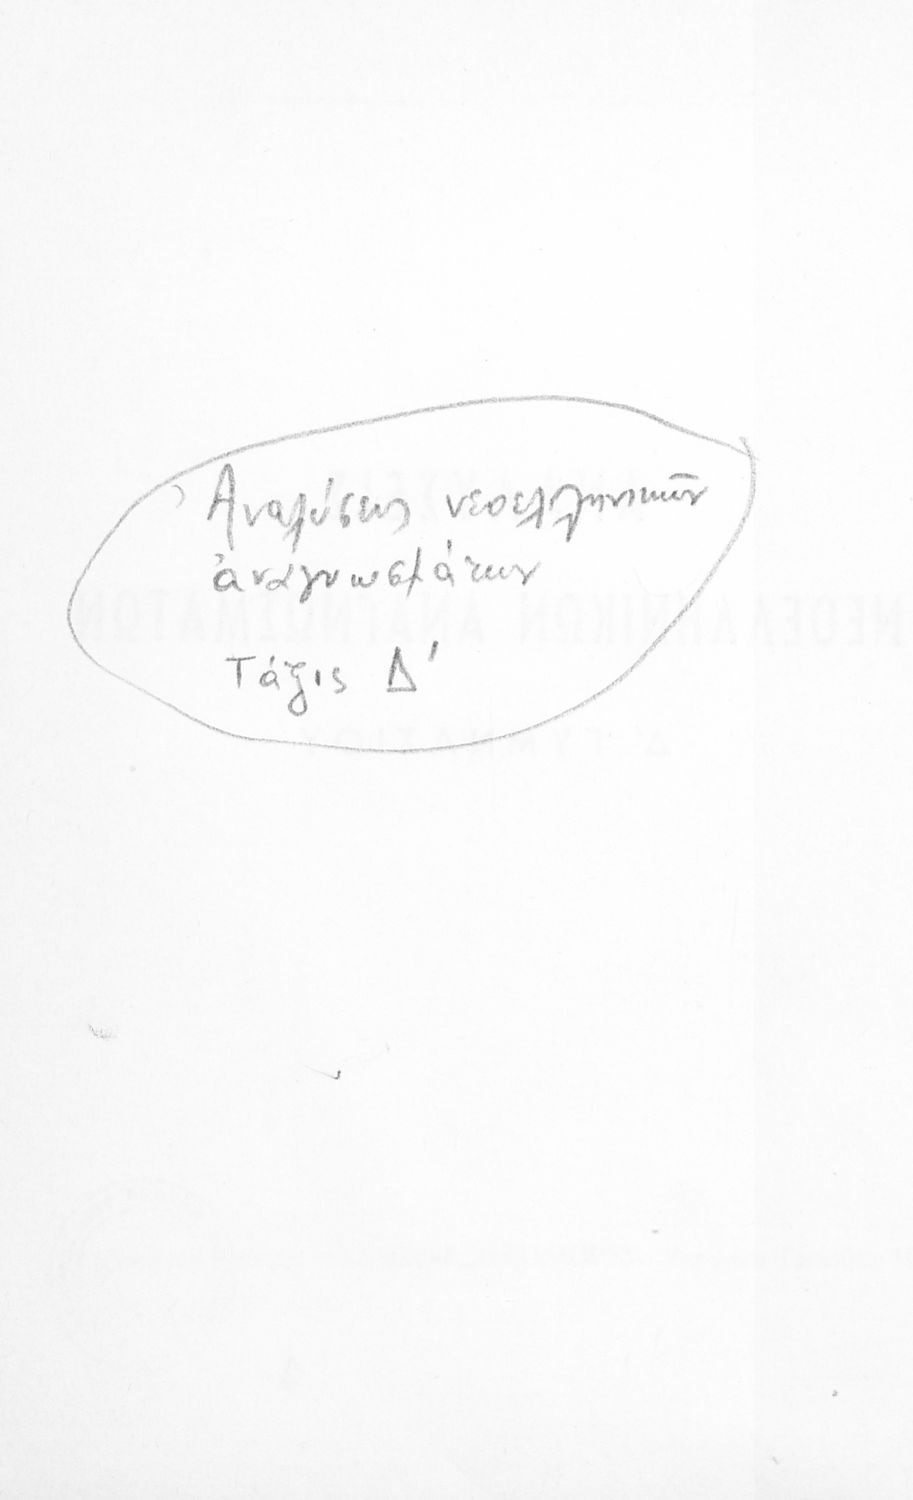 Ἀναλύσεις νεοελληνικῶν
ἀναγνωσμάτων
Τάξις Δ'